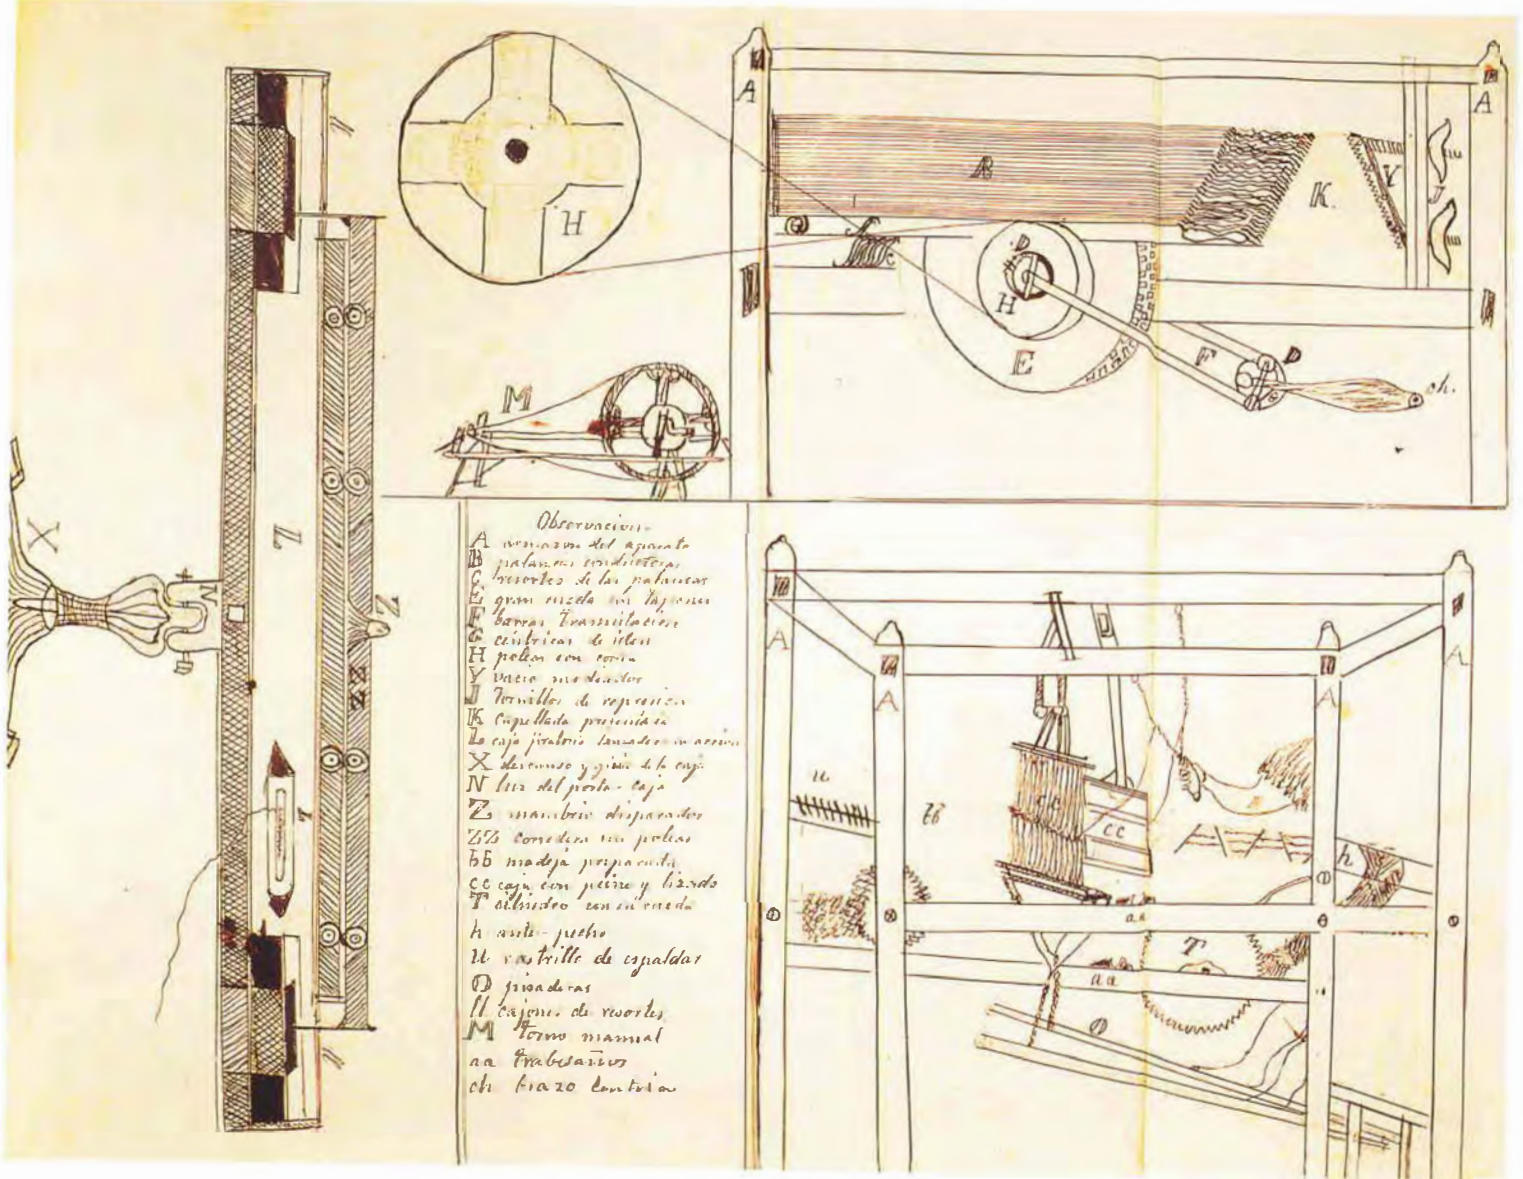 Observacion
A armazon del aparato
B palancas conductoras
C resortes de las palancas
E gran rueda con tapones
F barras
G centricas de idem
H poleas con
Y vacio
J Tornillos de represion
K Capellada
L caja jiratoria lanzadera en accion
X descanso y guia de la caja
N luz del porta-caja
Z manubrio disparador
ZZ corredera con poleas
bb madeja preparada
cc caja con peine y lizado
T cilindro con su rueda
h ante-pecho
u rastrillo de espaldar
O pisaderas
ll cajones de resortes
M Torno manual
aa trabesaños
ch brazo
H
M
A
A
B
K
Y
J
D
H
E
F
D
ch.
c
X
N
Z
Z
ZZ
A
A
A
A
D
u
bb
cc
cc
h
aa
T
aa
O
ll
ll